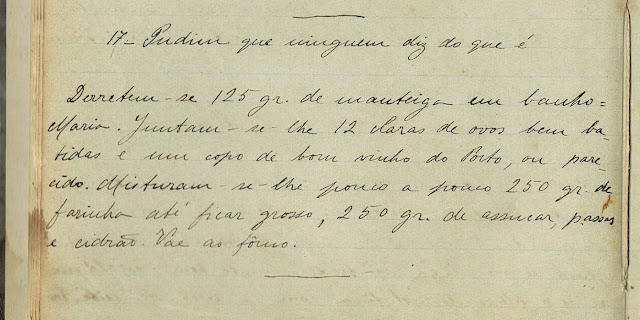 17- Pudim que ninguem diz do que é
Derretem-se 125 gr. de manteiga em banho=
Maria. Juntam-se-lhe 12 claras de ovos bem ba-
tidas e um copo de bom vinho do Porto, ou pare-
cido. Misturam-se-lhe pouco a pouco 250 gr. de
farinha até ficar grosso, 250 gr. de assucar, passas
e cidrão. Vae ao fôrno.